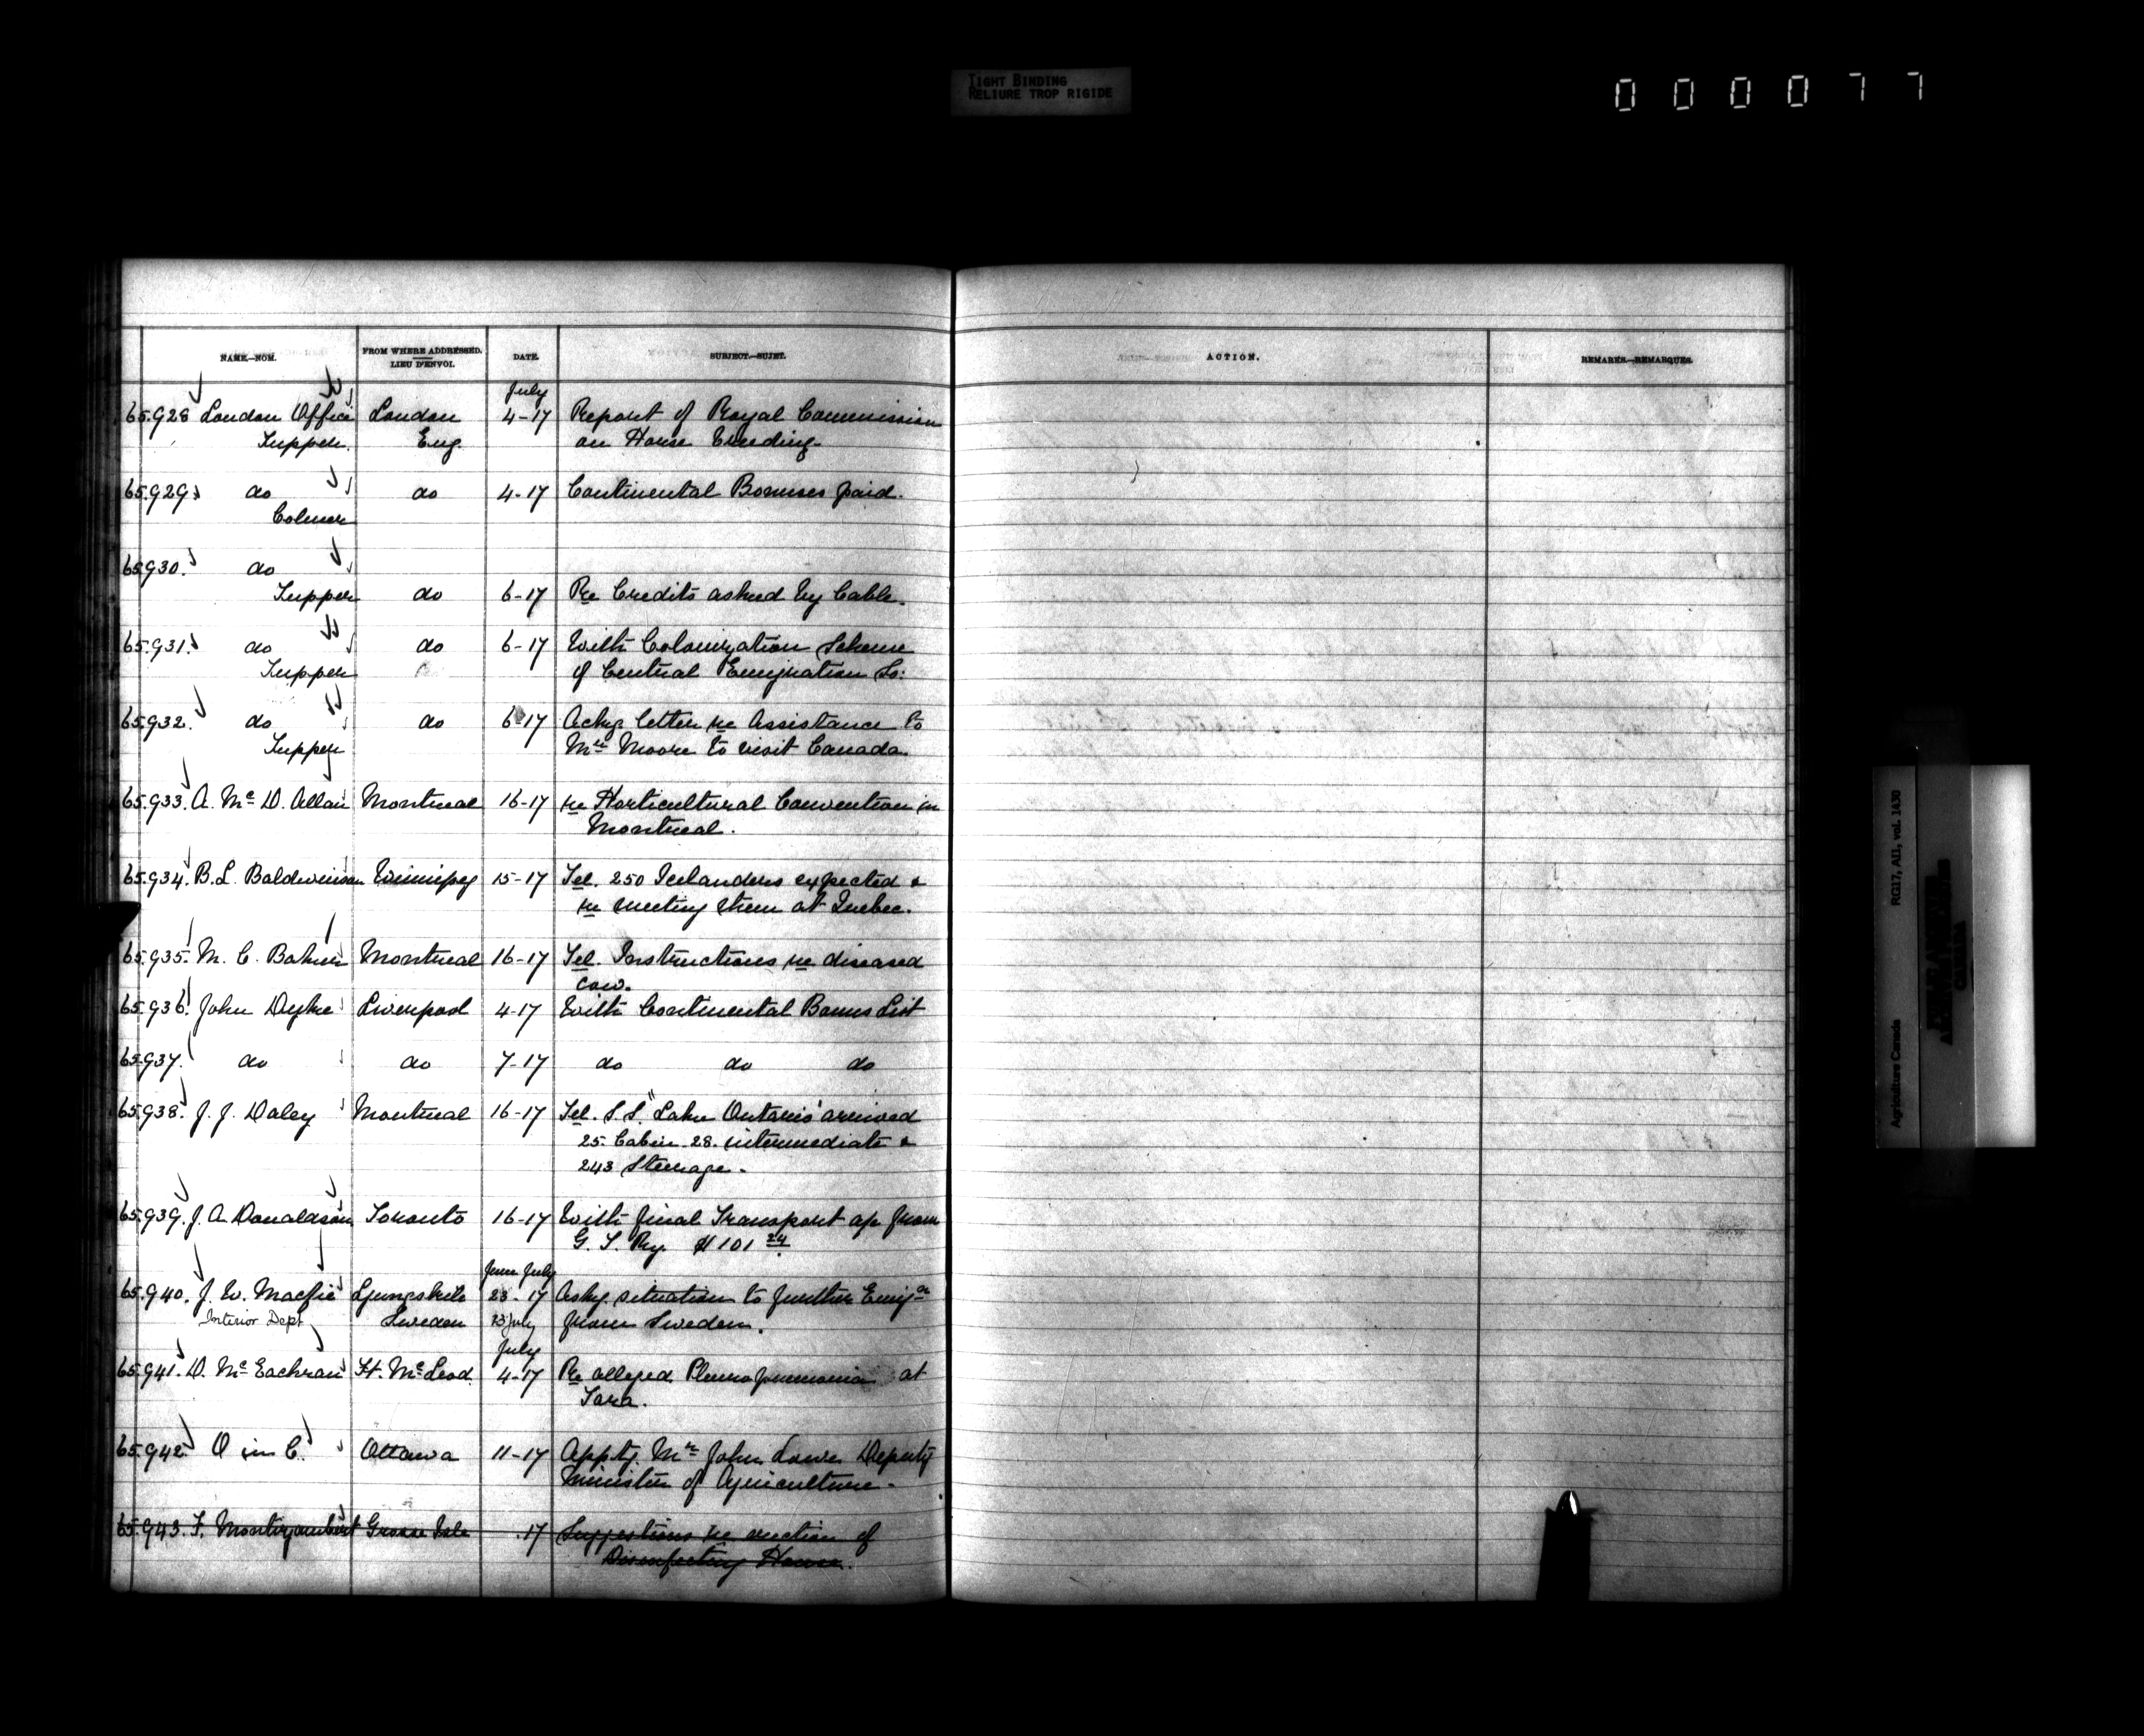 TIGHT BINDING
RELIURE TROP RIGIDE
000077
NAME.—NOM.
FROM WHERE ADDRESSED.
LIEU D'ENVOI.
DATE.
SUBJECT.—SUJET.
ACTION.
REMARKS.—REMARQUES.
July
65.928 London Office London 4-17 Report of Royal Commission
Tupper. Eng. on Horse breeding.
65.929 do do 4-17 Continental Bonuses paid.
Colmer
65.930. do
Tupper do 6-17 Re Credits asked by Cable.
65.931. do do 6-17 With Colonization Scheme
Tupper of Central Emigration So:
65.932. do do 6-17 Ackg letter re Assistance to
Tupper Mr Moore to visit Canada.
65.933. A. Mc D. Allan Montreal 16-17 re Horticultural Convention in
Montreal.
65.934. B. L. Baldwinson Winnipeg 15-17 Tel. 250 Icelanders expected &
re meeting them at Quebec.
65.935. M. C. Baker Montreal 16-17 Tel. Instructions re diseased
cow.
65.936. John Dyke Liverpool 4-17 With Continental Bonus List
65.937. do do 7-17 do do do
65.938. J. J. Daley Montreal 16-17 Tel. S.S. "Lake Ontario" arrived
25 Cabin 28. intermediate &
243 Steerage.
65.939. J. A. Donaldson Toronto 16-17 With final Transport a/c from
G. T. Ry. $101 24
June July
65.940. J. W. Macfie Ljungskile 23-17 Askg situation to further Emign
Interior Dept Sweden 23 July from Sweden.
July
65.941. D. Mc Eachran Ft. McLeod. 4-17 Re alleged Pleuro pneumonia at
Tara.
65.942. O in C. Ottawa 11-17 Apptg. Mr John Lowe Deputy
Minister of Agriculture.
65.943. F. Montizambert Grosse Isle .17 Suggestions re erection of
Disinfecting House.
Agriculture Canada RG17, AI1, vol. 1430
PUBLIC ARCHIVES
ARCHIVES PUBLIQUES
CANADA